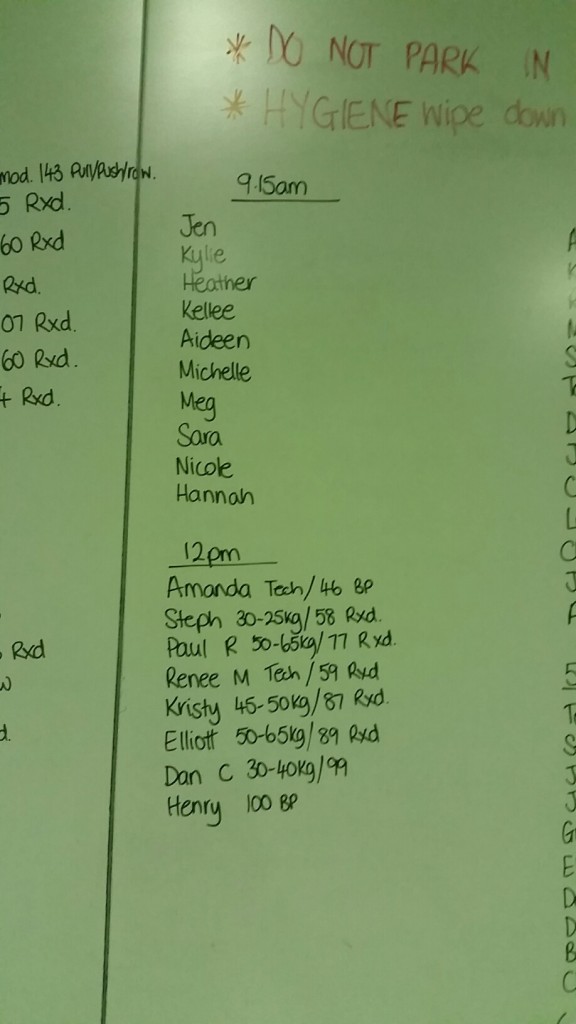 * DO NOT PARK IN
* HYGIENE wipe down
mod. 143 Pull/Push/row.
5 Rxd.
60 Rxd
Rxd.
07 Rxd.
60 Rxd.
4 Rxd.
Rxd
9.15am
Jen
Kylie
Heather
Kellee
Aideen
Michelle
Meg
Sara
Nicole
Hannah
12pm
Amanda Tech/46 BP
Steph 30-25kg/58 Rxd.
Paul R 50-65kg/77 Rxd.
Renee M Tech/59 Rxd
Kristy 45-50kg/87 Rxd.
Elliott 50-65kg/89 Rxd
Dan C 30-40kg/99
Henry 100 BP